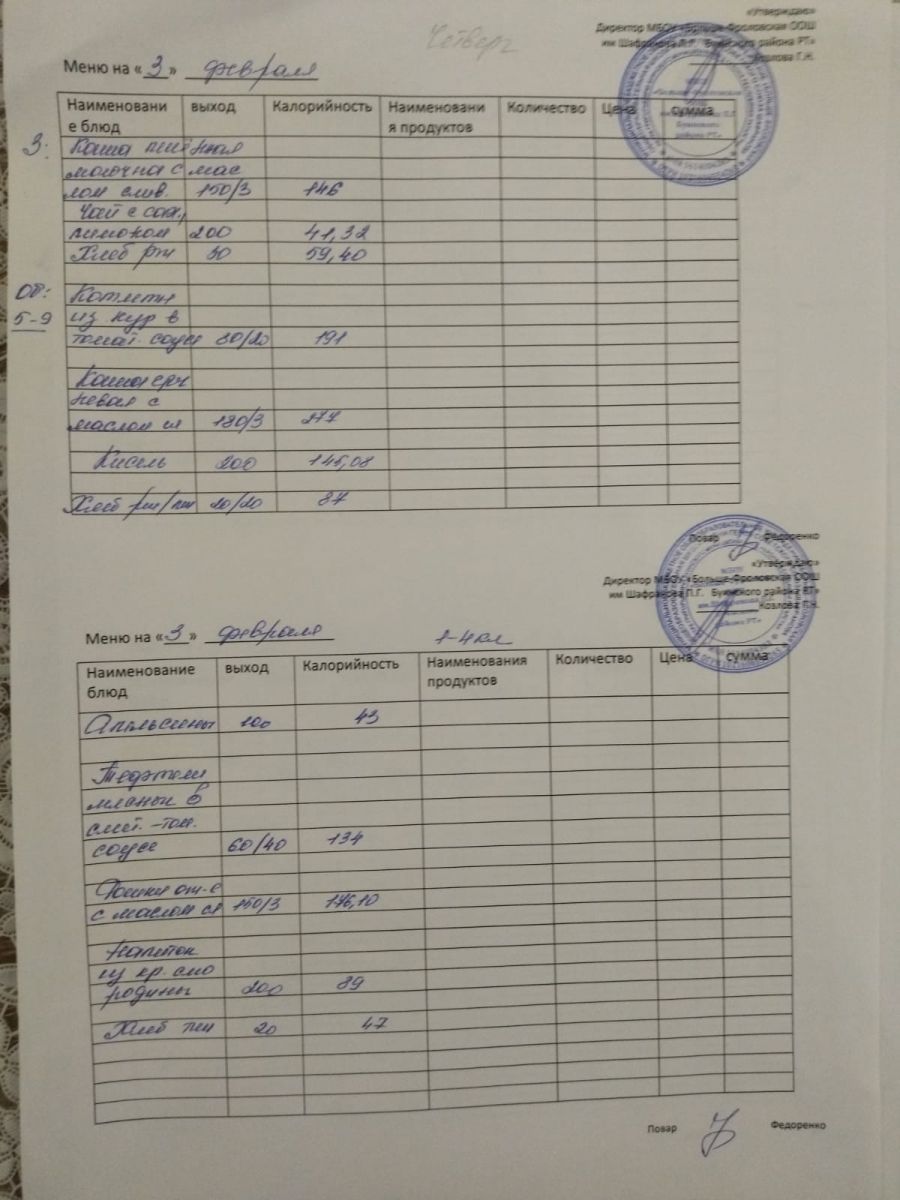 «Утверждаю»
Четверг
Директор МБОУ «Больше-Фроловская ООШ
им Шафранова П.Г. Буинского района РТ»
Козлова Г.Н.
Меню на « 3 » февраля
Наименовани е блюд выход Калорийность Наименовани я продуктов Количество Цена сумма
З: Каша пшённая
молочна с мас
лом слив. 150/3 146
Чай с сах,
лимоном 200 41,32
Хлеб рж 30 59,40
Об: Котлеты
5-9 из кур в
томат. соусе 80/20 191
Каша греч
невая с
маслом сл 180/3 277
Кисель 200 145,08
Хлеб рж/пш 20/20 87
Повар Федоренко
«Утверждаю»
Директор МБОУ «Больше-Фроловская ООШ
им Шафранова П.Г. Буинского района РТ»
Козлова Г.Н.
Меню на « 3 » февраля 1-4 кл
Наименование блюд выход Калорийность Наименования продуктов Количество Цена сумма
Апельсины 100 43
Тефтели
мясные в
смет. -том.
соусе 60/40 134
Рожки от-е
с маслом сл 150/3 176,10
Напиток
из кр. смо
родины 200 89
Хлеб пш 20 47
Повар Федоренко